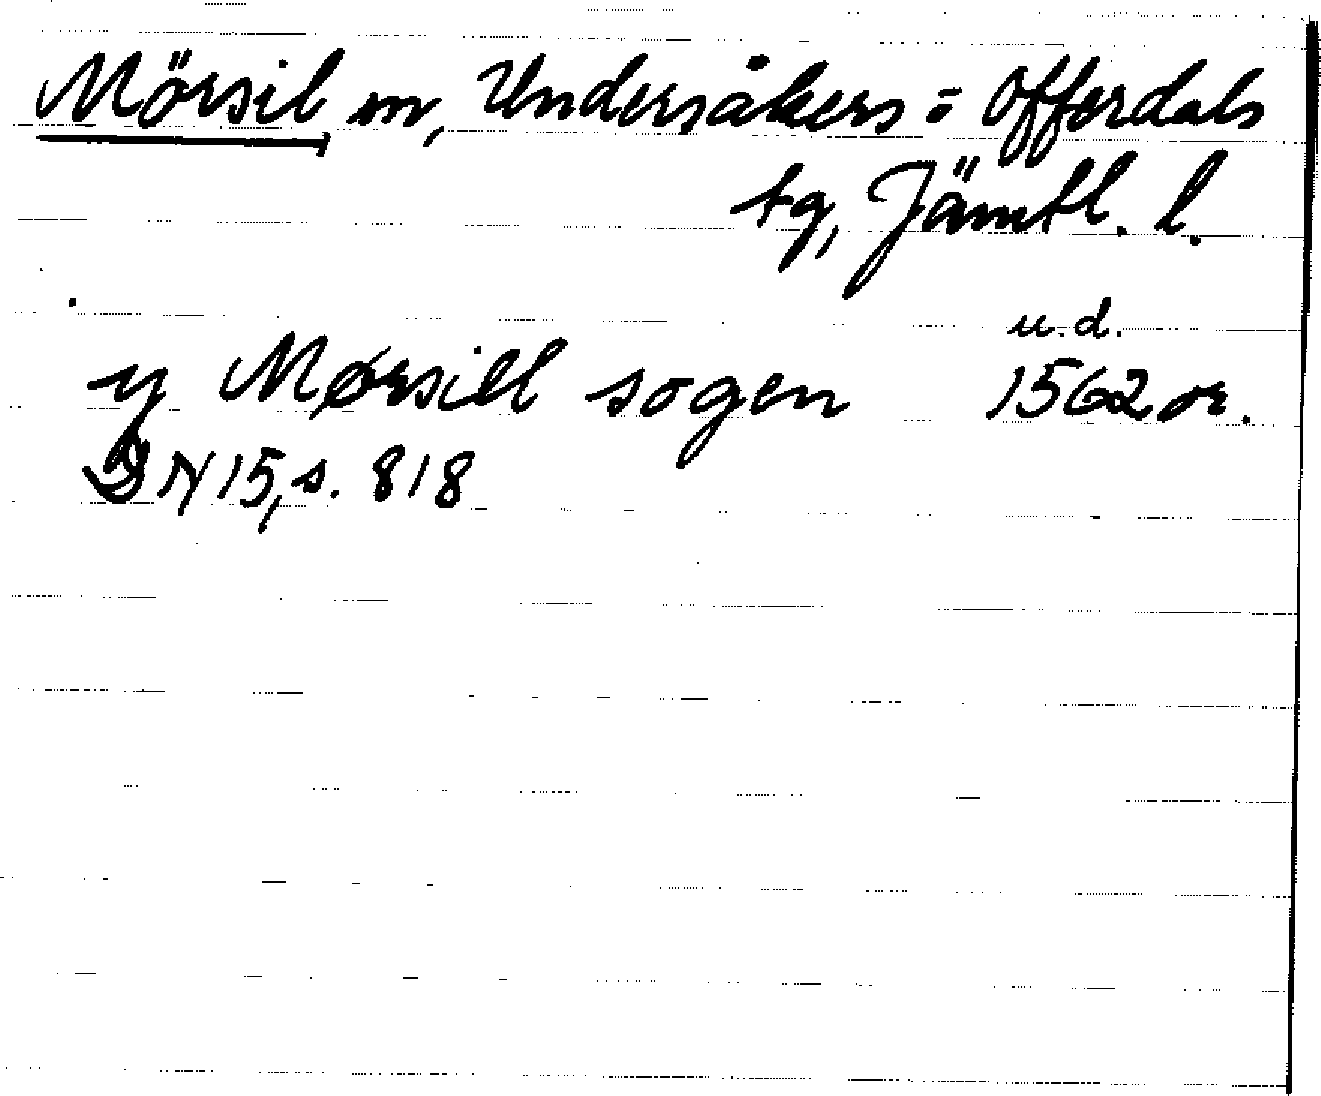 Mörsil sn, Undersåkers o Offerdals
tg, Jämtl. l.
u.d.
y Mørsill sogen 1562 or.
DN 15, s. 818